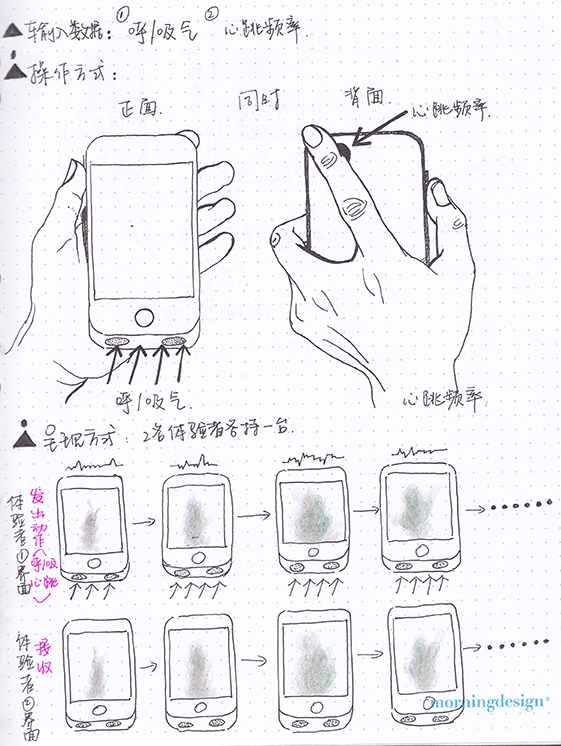 输入数据：①呼/吸气 ②心跳频率.
操作方式：
正面. 同时 背面.
心跳频率.
呼/吸气. 心跳频率.
呈现方式：2名体验者各持一台.
体验者①界面
发出动作（呼/吸 心跳）
体验者②界面
接收
morningdesign®